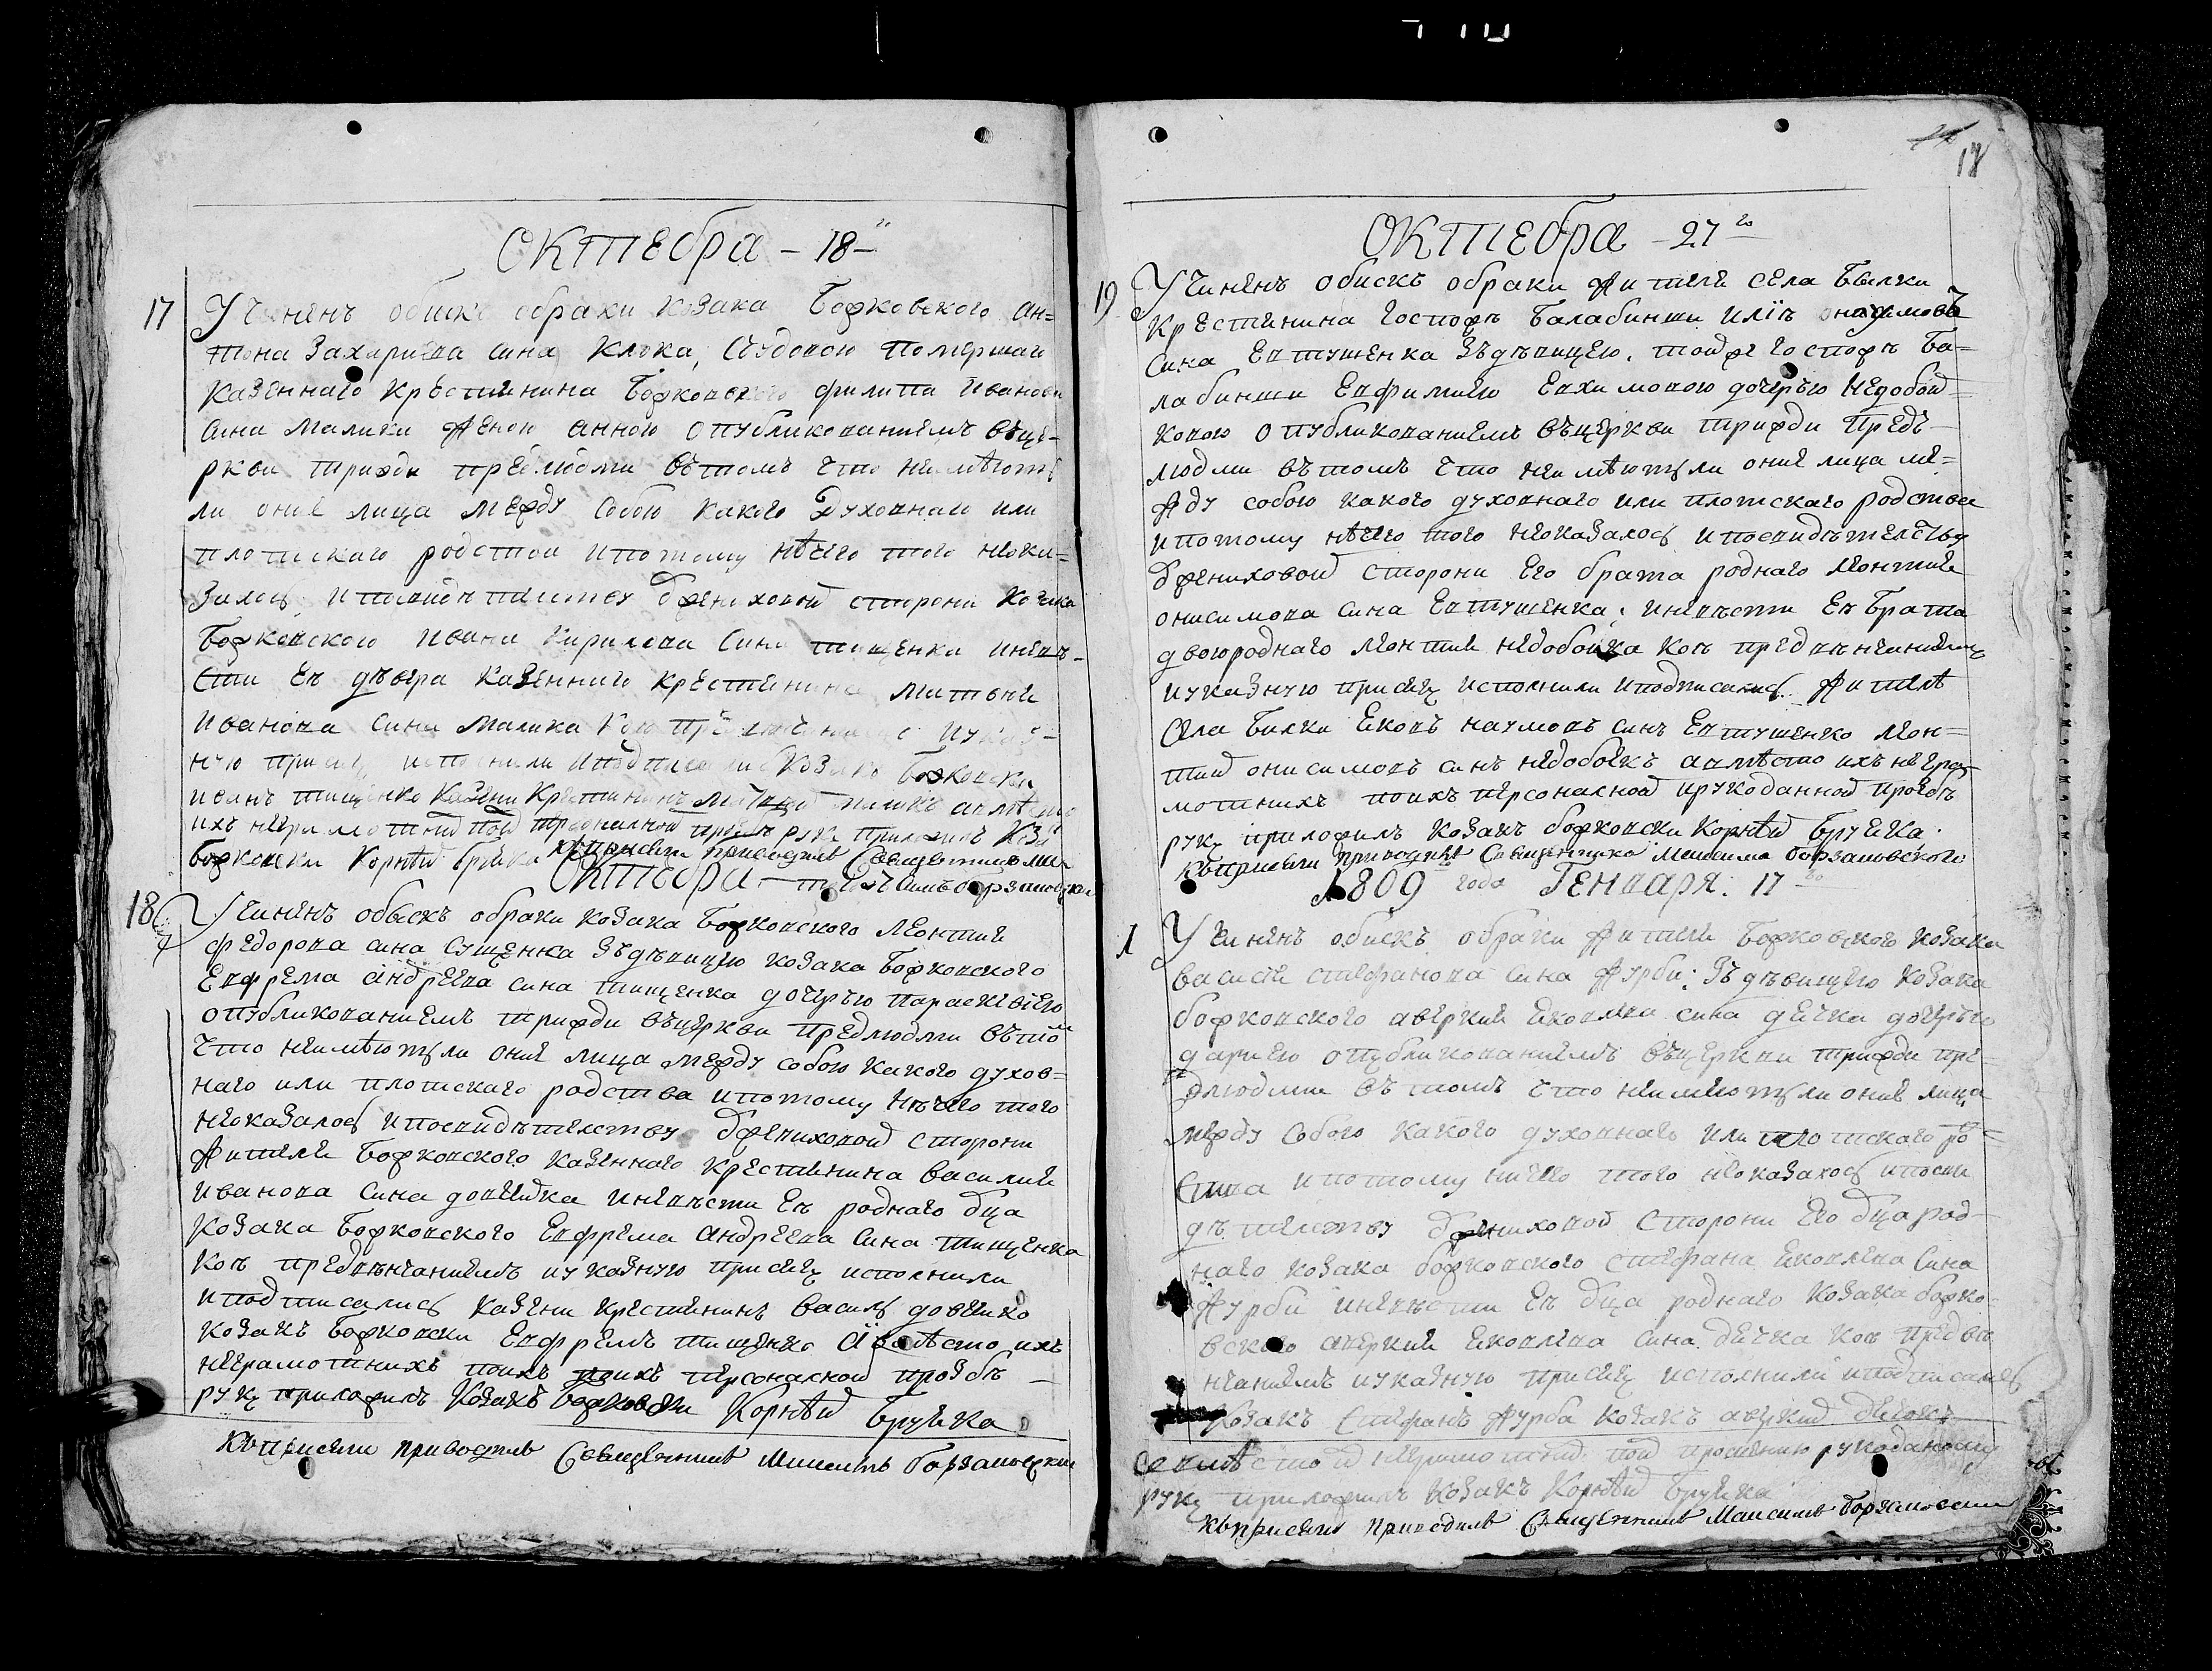 17
Октебра – 18 –
17 Учиненъ обискъ обраки козака Божковского Ан=
тона Захариева сина Клюка, Съудовою Помершаго
Казенного Крестиянина Божковского филипа Иванова
Сина Малики женою Анною Опубликованиемъ въце-
ркви трижди предлюдми вътомъ Что неимѣютъ
ли оние лица между Собою Какого Духовнаго или
плотскаго родства ипотому нѣчего того неока=
залось, ипосвидѣтелству Ѿжениховой сторони Козака
Божковского Ивана Кирилова Сина тищенка иневѣ-
сти Еѣ дѣвера Казенного Крестиянина Матвеи
Иванова Сина Малика Кои
ную присягу исполнили иподписались Козакъ Божковски
Иванъ тищенко Казени Крестиянинъ Матвей
ихъ неграмотних руку приложилъ Коза
Божковски Корнѣй Бруйка Къприсяги приводилъ Священникъ Ма
Октебра –
18 Учиненъ обыскъ обраки козака Божковского Леонтия
Федорова сина Сущенка Зъдѣвицею козака Божковского
Евфрема андреева сина тищенка дочерью параскевиею
опубликованиемъ трижди въцеркви предлюдми вътом
Что неимѣютъли оние лица между собою какого духов=
наго или плотскаго родства ипотому нѣчего того
неоказалось ипосвидѣтелству Ѿжениховой сторони
жителя Божковского Казенного Крестиянина Василия
Иванова Сина довейка иневѣсти Еѣ роднаго Ѿца
Козака Божковского Евфрема Андреева Сина тищенка
Коѣ предвѣнчаниемъ иуказную присягу исполнили
иподписались Казени крестиянинъ Василь довейко
козакъ Божковски Евфремъ тищенко авмѣсто ихъ
неграмотнихъ поихъ поихъ персоналной прозбѣ –
руку приложилъ Козакъ Божковски Корнѣй Бруйка
Къприсяги приводилъ Священникъ Максимъ Борзаковски
Октебра – 27 го
19 Учиненъ обискъ обраки жителя села Билки
Крестиянина Госпожѣ Балабинши Илїи онисимова
Сина Евтушенка Зъдѣвицею, тойже Госпожѣ Ба=
лабинши Евфимиею Евхимовою дочерью Недобой=
ковою Опубликованиемъ въцеркви трижди Предъ–
людми вътомъ Что неимѣютъли оние лица ме=
жду собою какого духовнаго или плотскаго родства
ипотому нѣчего того неоказалось ипосвидѣтелству
Ѿжениховой Сторони Его брата роднаго Леонтия
онисимова сина Евтушенка, иневѣсти Еѣ Брата
двоюроднаго Леонтия недобойка Коѣ предвѣнчаниемъ
иуказную присягу исполнили иподписались. Жителѣ
села Билки Яковъ наумовъ синъ Евтушенко Леон=
тий онисимовъ синъ недобоекъ авмѣсто ихъ негра
мотнихъ поихъ персоналной ирукоданной прозбѣ
руку приложилъ Козакъ божковски Корнѣй Бруйка.
Къприсяги приводилъ Священникъ Максимъ Борзаковского
1809 года Генваря: 17 го
1 Учиненъ обискъ обраки жителя Божковского козака
василия стефанова сина журби: Зъдѣвицею козака
божковского аверкия яковлева сина дейка дочерью
дариею опубликованиемъ въцеркви трижди пре=
длюдми вътомъ Что неимеютъли оние лица
между Собою Какого духовнаго или плотскаго ро=
Ства ипотому ничего того неоказалось ипосви
дѣтелству Ѿжениховой Сторони Его Ѿца род–
наго козака божковского стефана яковлева Сина
журби иневѣсти Еѣ Ѿца роднаго Козака божко
вского аверкия яковлева сина дейка коѣ предвѣ
нчаниемъ иуказную присягу исполнили иподписались
Козакъ Стефанъ журба козакъ аверкий дейокъ
рукоданному
руку приложилъ козакъ Корнѣй Бруйка
Къприсяги приводилъ Священникъ Максимъ Борзаковски